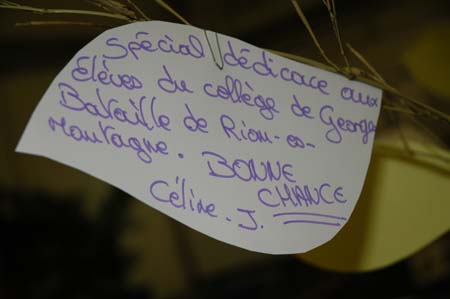 Spécial dédicace aux
élèves du collège de Georges
Bataille de Riom-es-
Montagne. BONNE
CHANCE
Céline. J.